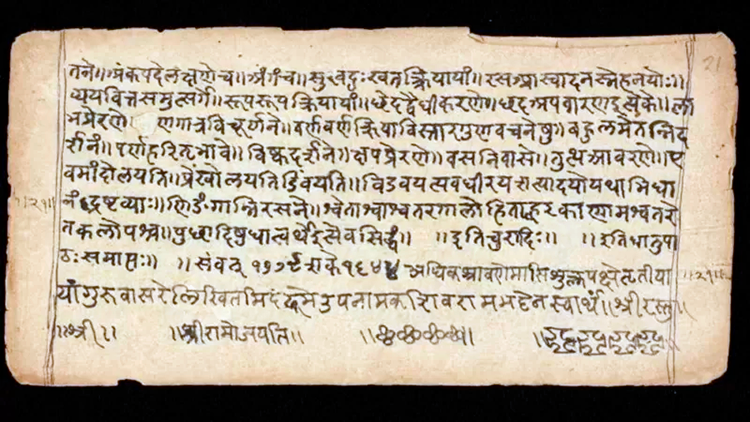 तने॥अंकपदेलक्षणेच॥अंगच॥सुखदुःखतत्क्रियायां॥रसआस्वादनस्नेहनयोः॥ 21
व्ययवित्तसमुत्सर्गे॥रूपरूपक्रियायां॥छेदद्वैधीकरणे॥छदअपवारणइत्येके॥ला
भप्रेरणे॥ व्रणगात्रविचूर्णने॥वर्णवर्णक्रियाविस्तारगुणवचनेषु॥बहुलमेतन्निद
र्शनं॥पर्णहरितभावे॥विष्कदर्शने॥क्षपप्रेरणे॥वसनिवासे॥तुत्थआवरणे॥ए
वमांदोलयति॥प्रेंखोलयति॥विडंबयति॥अवधीरयत्यादयोयथाभिधा
॥२१॥ नंद्रष्टव्याः॥णिङंगान्निरसने॥श्वेताश्वाश्वतरगालोडिताह्वरकाणामश्वतरे
तकलोपश्च॥पुच्छादिषुधात्वर्थइत्येवसिद्धं॥ ॥इतिचुरादिः॥ ॥इतिधातुपा
ठःसमाप्तः॥ ॥संवत् १७७९ शके १६४४ अधिकश्रावणेमासिशुक्लपक्षेतृतीया ॥२१॥
यांगुरुवासरेलिखितमिदं उपनामकशिवरामभट्टेनस्वार्थं॥श्रीरस्तु॥
॥श्री॥ ॥श्रीरामोजयति॥